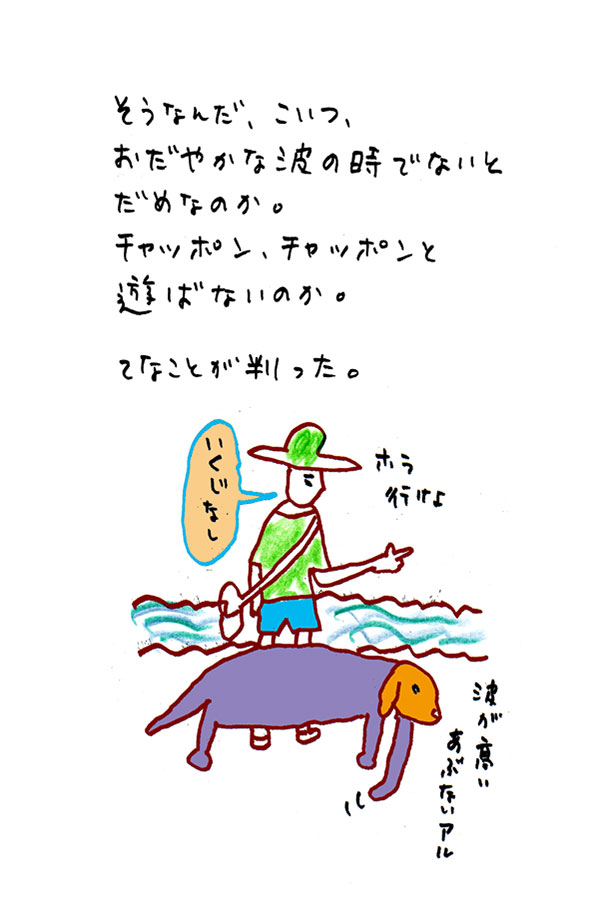 そうなんだ、こいつ、
おだやかな波の時でないと
だめなのか。
チャッポン、チャッポンと
遊ばないのか。
てなことが判った。
いくじなし
ホラ
行けよ
波が高い
あぶないアル